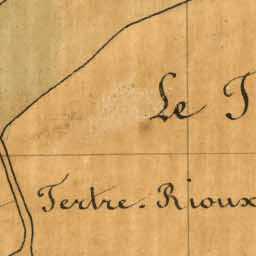 Le T
Tertre. Rioux